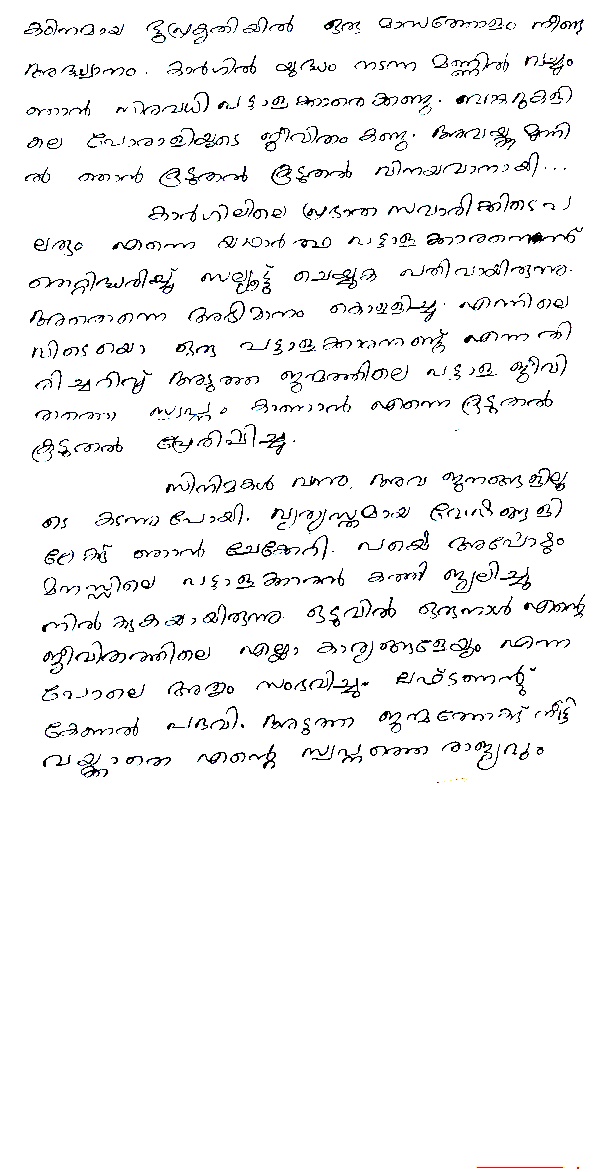 കഠിനമായ ഭൂപ്രകൃതിയിൽ ഒരു മാസത്തോളം നീണ്ട
അദ്ധ്വാനം. കാർഗിൽ യുദ്ധം നടന്ന മണ്ണിൽ വച്ചും
ഞാൻ നിരവധി പട്ടാളക്കാരെ കണ്ടു. ബങ്കറുകളി
ലെ പോരാളിയുടെ ജീവിതം കണ്ടു. അവയ്ക്കു മുന്നി
ൽ ഞാൻ കൂടുതൽ കൂടുതൽ വിനയവാനായി...
കാർഗിലിലെ പ്രഭാത സവാരിക്കിടെ പ
ലരും എന്നെ യഥാർത്ഥ പട്ടാളക്കാരനെന്ന്
തെറ്റിദ്ധരിച്ച് സല്യൂട്ട് ചെയ്യുക പതിവായിരുന്നു.
അതെന്നെ അഭിമാനം കൊള്ളിച്ചു. എന്നിലെ
വിടെയൊ ഒരു പട്ടാളക്കാരനുണ്ട് എന്ന തി
രിച്ചറിവ് അടുത്ത ജന്മത്തിലെ പട്ടാള ജീവി
തത്തെ സ്വപ്നം കാണാൻ എന്നെ കൂടുതൽ
കൂടുതൽ പ്രേരിപ്പിച്ചു.
സിനിമകൾ വന്നു. അവ ജനങ്ങളിലൂ
ടെ കടന്നുപോയി. വ്യത്യസ്തമായ വേഷങ്ങളി
ലേക്ക് ഞാൻ ചേക്കേറി. പക്ഷെ അപ്പോഴും
മനസ്സിലെ പട്ടാളക്കാരൻ കത്തി ജ്വലിച്ചു
നിൽക്കുകയായിരുന്നു. ഒടുവിൽ ഒരുനാൾ എന്റെ
ജീവിതത്തിലെ എല്ലാ കാര്യങ്ങളേയും എന്ന
പോലെ അതും സംഭവിച്ചു. ലഫ്ടണന്റ്
കേണൽ പദവി. അടുത്ത ജന്മത്തേക്ക് നീട്ടി
വയ്ക്കാതെ എന്റെ സ്വപ്നത്തെ രാജ്യവും